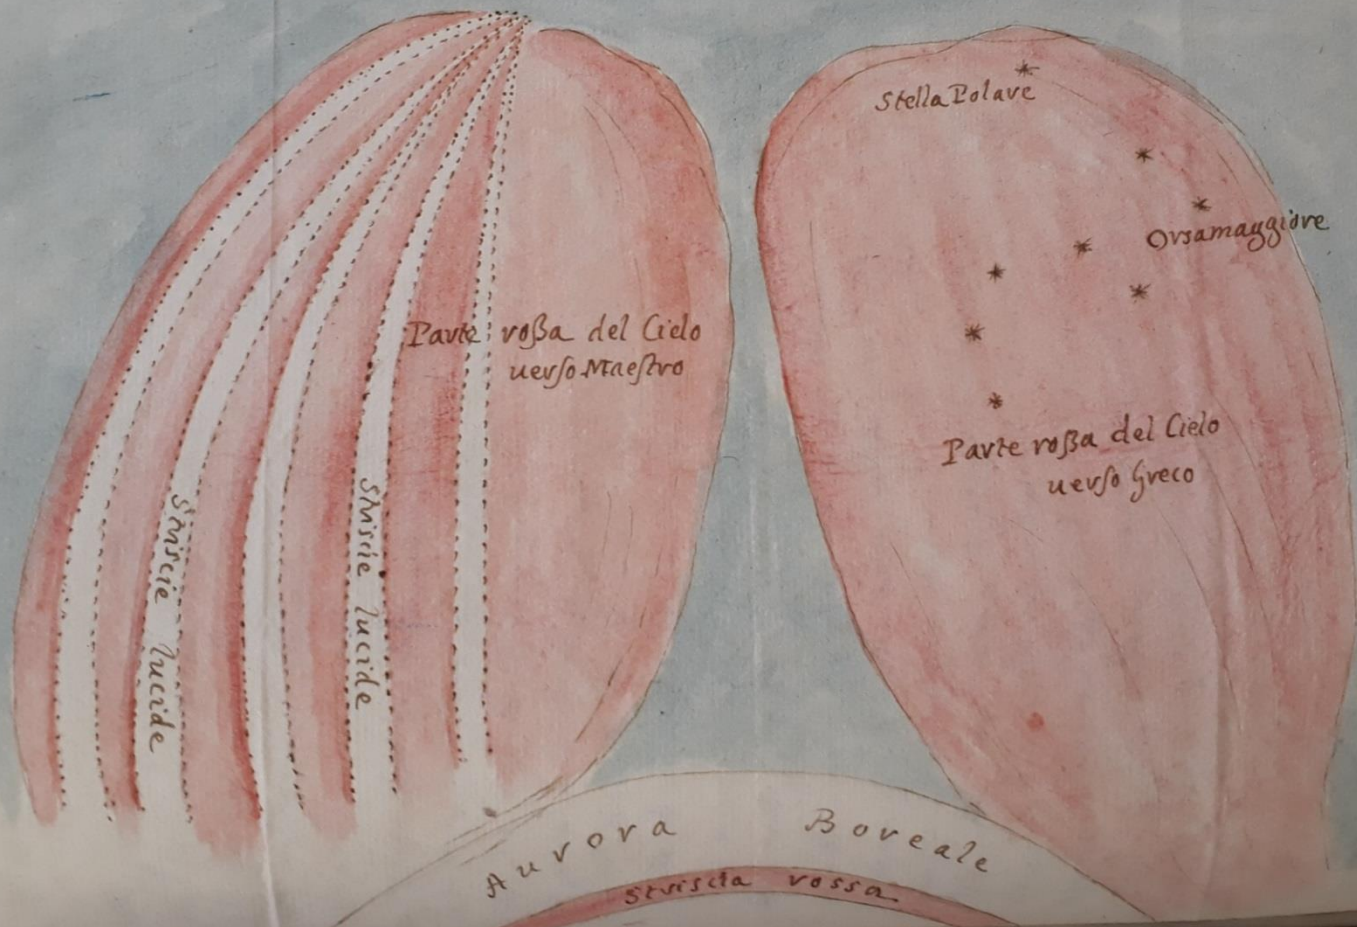 Stella Polare
Orsamaggiore
Parte roßa del Cielo
uerſo Maeſtro
Parte roßa del Cielo
uerſo Greco
Striscie lucide
Striscie lucide
Aurora Boreale
Striscia rossa